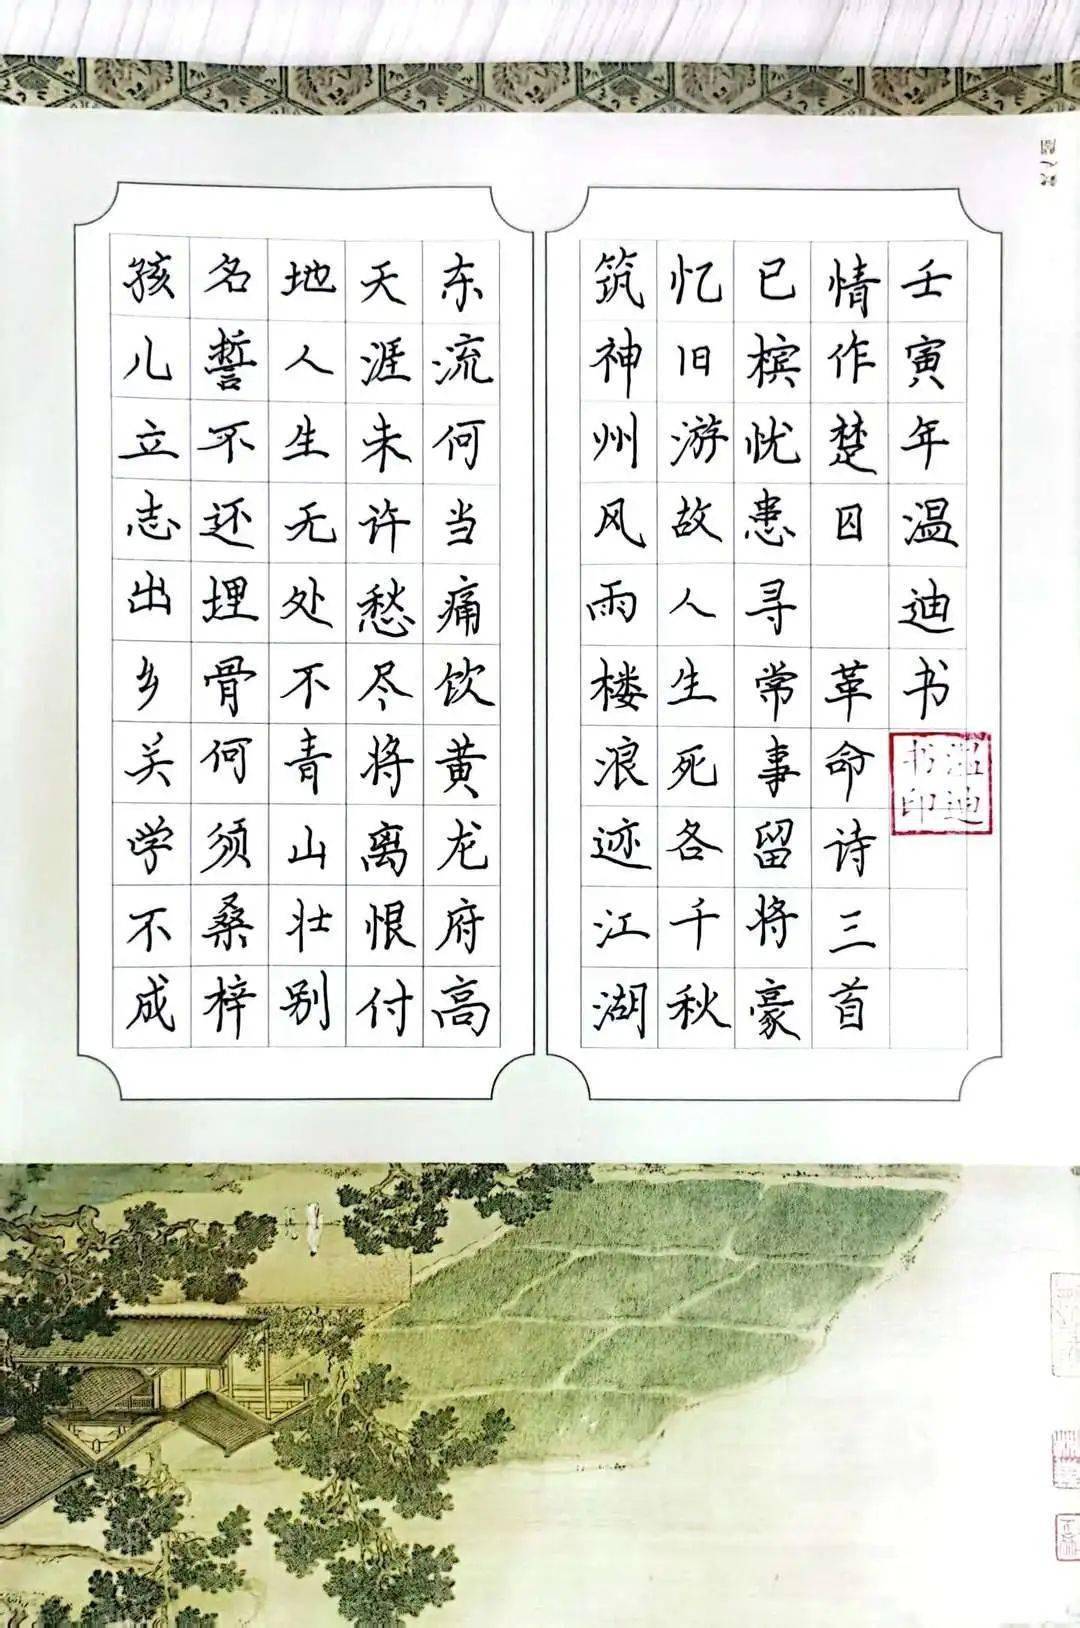 孩儿立志出乡关学不成
名誓不还埋骨何须桑梓
地人生无处不青山壮别
天涯未许愁尽将离恨付
东流何当痛饮黄龙府高
筑神州风雨楼浪迹江湖
忆旧游故人生死各千秋
已槟忧患寻常事留将豪
情作楚囚 革命诗三首
壬寅年温迪书
温迪书印